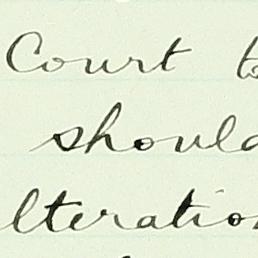 Court to
should
lteration